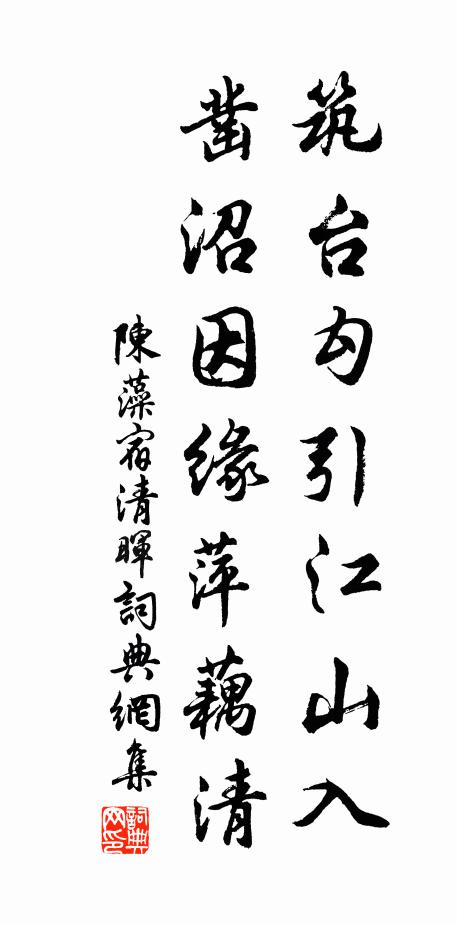 筑台勾引江山入
凿沼因缘萍藕清
陳藻宿清暉詞典網集
詞典網印